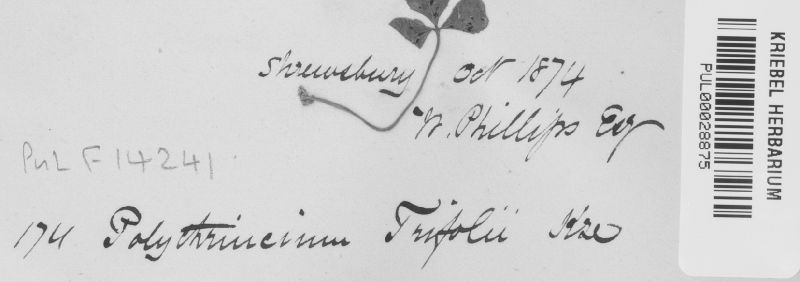 Shrewsbury Oct 1874
W. Phillips Esq
PUL F 14241
174 Polythrincium Trifolii Kze
KRIEBEL HERBARIUM
PUL00028875